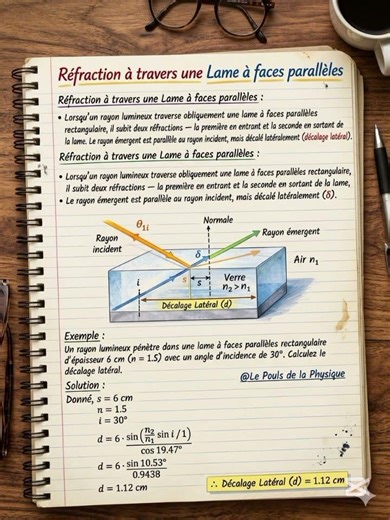 Réfraction à travers une Lame à faces parallèles
Réfraction à travers une Lame à faces parallèles :
• Lorsqu'un rayon lumineux traverse obliquement une lame à faces parallèles
rectangulaire, il subit deux réfractions — la première en entrant et la seconde en sortant de
la lame. Le rayon émergent est parallèle au rayon incident, mais décalé latéralement (décalage latéral).
Réfraction à travers une Lame à faces parallèles :
• Lorsqu'un rayon lumineux traverse obliquement une lame à faces parallèles rectangulaire,
il subit deux réfractions — la première en entrant et la seconde en sortant de la lame,
• Le rayon émergent est parallèle au rayon incident, mais décalé latéralement (δ).
θ1i
Normale
Rayon
incident
δ
Rayon émergent
Air n1
i
s
s
Verre
n2 > n1
Décalage Latéral (d)
Exemple :
Un rayon lumineux pénètre dans une lame à faces parallèles rectangulaire
d'épaisseur 6 cm (n = 1.5) avec un angle d'incidence de 30°. Calculez le
décalage latéral.
@Le Pouls de la Physique
Solution :
Donné, s = 6 cm
n = 1.5
i = 30°
d = 6 · sin(n2/n1 sin i / 1) / cos 19.47°
d = 6 · sin 10.53° / 0.9438
d = 1.12 cm
∴ Décalage Latéral (d) = 1.12 cm